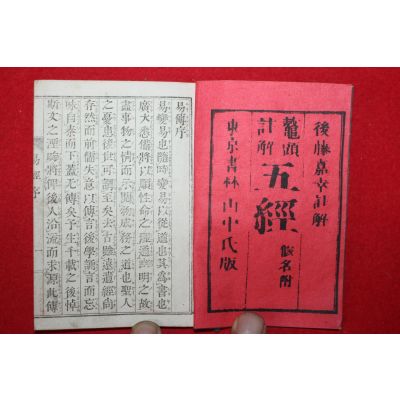 後藤嘉幸註解
鼇頭
註解
五經
假名附
東京書林 山中氏版
易傳序
易變易也隨時變易以從道也其為書也
廣大悉備將以順性命之理通幽明之故
盡事物之情而示開物成務之道也聖人
之憂患後世可謂至矣去古雖遠遺經尚
存然而前儒失意以傳言後學誦言而忘
味自秦而下蓋无傳矣予生千載之後悼
斯文之湮晦將俾後人沿流而求源此傳
易經序